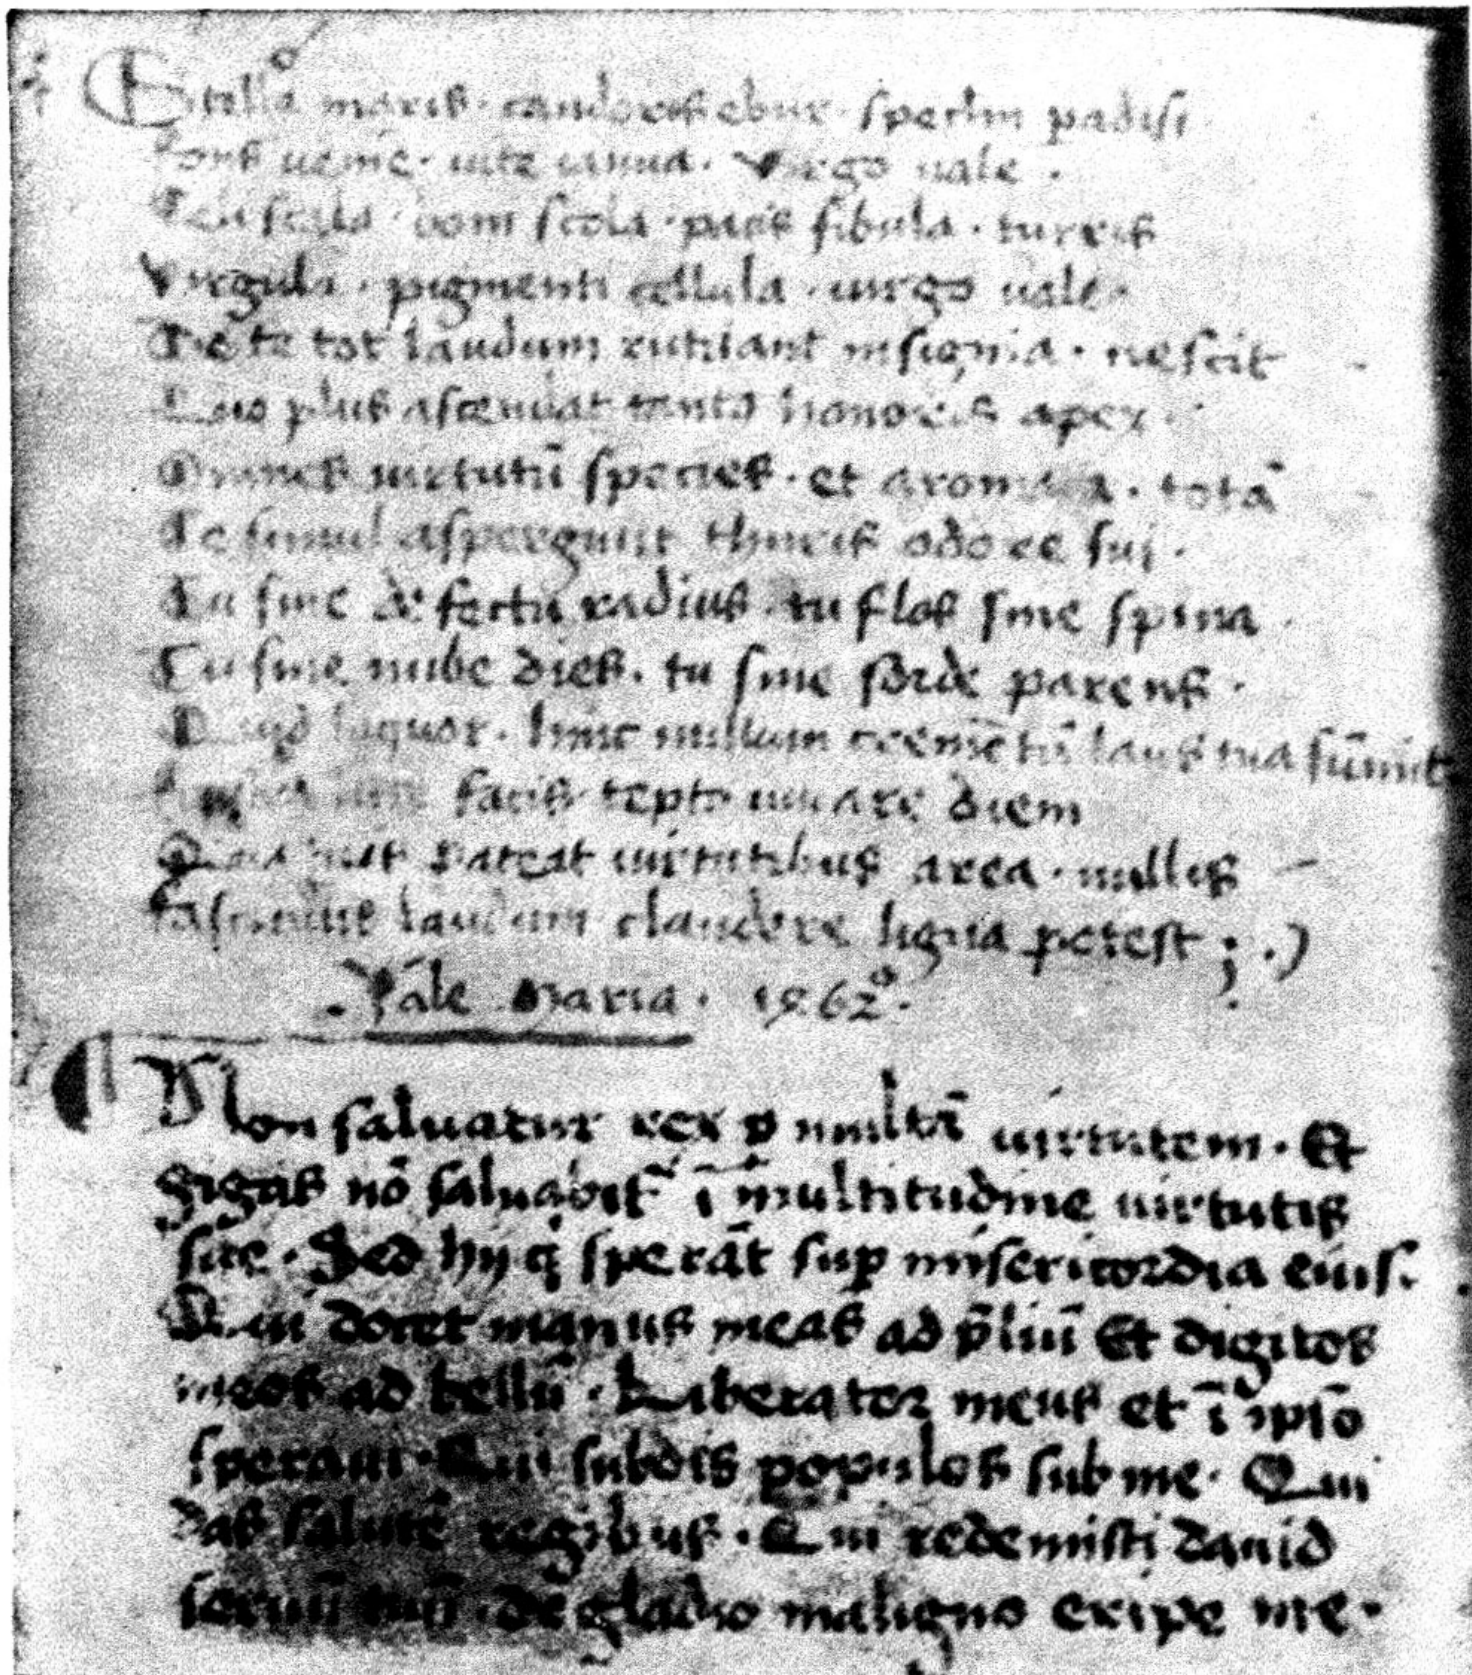 O Stella maris candoris ebur specłm padisi
fons uenie uite ianua. Virgo uale.
scala domi scola pacis fibula turris
Virgula pigmenti cellula uirgo uale
De te tot laudum rutilant insignia nescit
Quo plus ascendat tanto honoris apex
Omnes uirtutū species et aromata totā
Te simul aspergunt thuris odore sui
Tu sine defectu radius tu flos sine spina
Tu sine nube dies. tu sine sorde parens
Quid loquor. hinc nullum cremētū laus tua sūmit
facis tepto iuuare diem
pateat uirtutibus area nullis
laudum claudere ligna potest ; .)
. Vale Maria. 1562°.
¶ Non saluatur rex p multā uirtutem. Et
Gigas nō saluabit̄ ī multitudine uirtutis
sue. Sed hij q̨ sperāt sup misericordia eius.
Qui docet manus meas ad p̄liū Et digitos
meos ad bellū. Liberator meus et ī ipso
speraui. Qui subdis populos sub me. Qui
das salutē regibus. Qui redemisti dauid
seruū tuū. de gladio maligno eripe me.